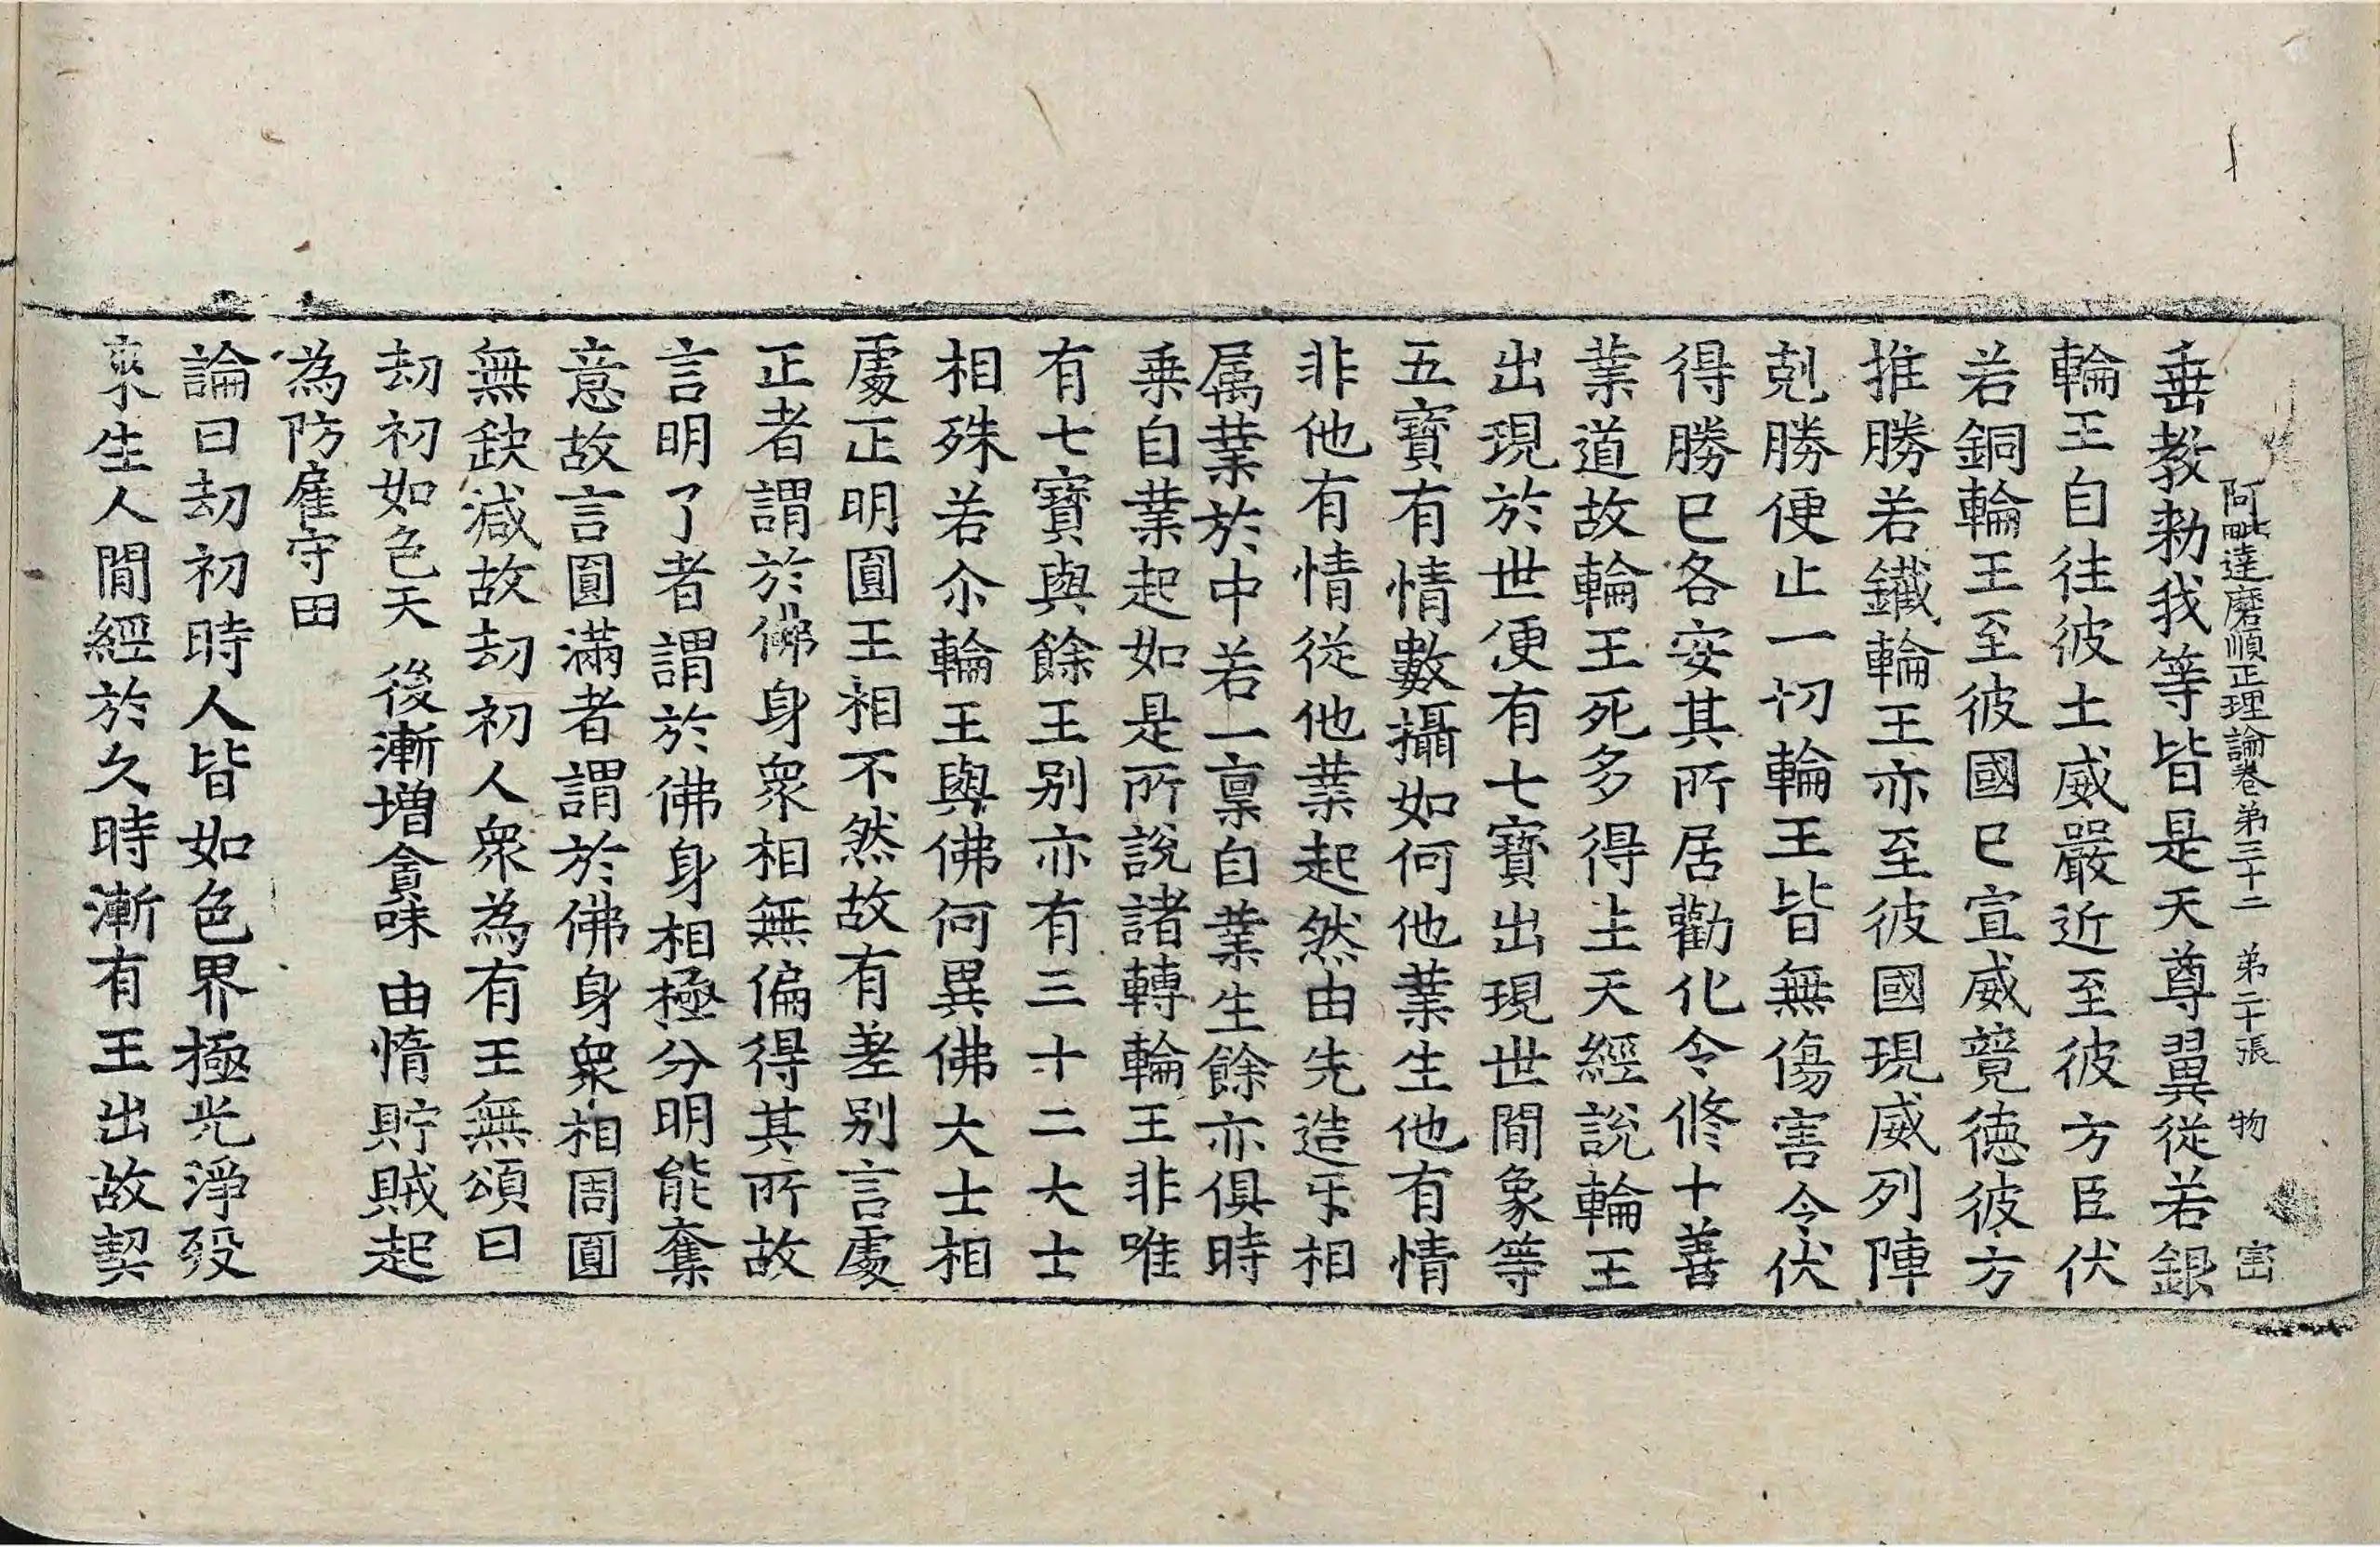 阿毗達磨順正理論卷第三十二　第二十張　物　宻
垂教勑我等皆是天尊翼從若銀
輪王自往彼土威嚴近至彼方臣伏
若銅輪王至彼國巳宣威競徳彼方
推勝若鐵輪王亦至彼國現威列陣
剋勝便止一切輪王皆無傷害令伏
得勝巳各安其所居勸化令修十善
業道故輪王死多得上天經說輪王
出現於世便有七寶出現世間象等
五寶有情數攝如何他業生他有情
非他有情從他業起然由先造㸦相
属業於中若一禀自業生餘亦俱時
乗自業起如是所說諸轉輪王非唯
有七寶與餘王别亦有三十二大士
相殊若尒輪王與佛何異佛大士相
處正明圓王相不然故有差别言處
正者謂於佛身衆相無偏得其所故
言明了者謂於佛身相極分明能奪
意故言圓滿者謂於佛身衆相周圓
無缺減故劫初人衆為有王無頌曰
劫初如色天　後漸增貪味　由惰貯賊起
為防雇守田
論曰劫初時人皆如色界極光淨歿
來生人間經於久時漸有王出故契